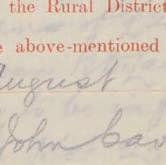 the Rural District
above-mentioned
August
John